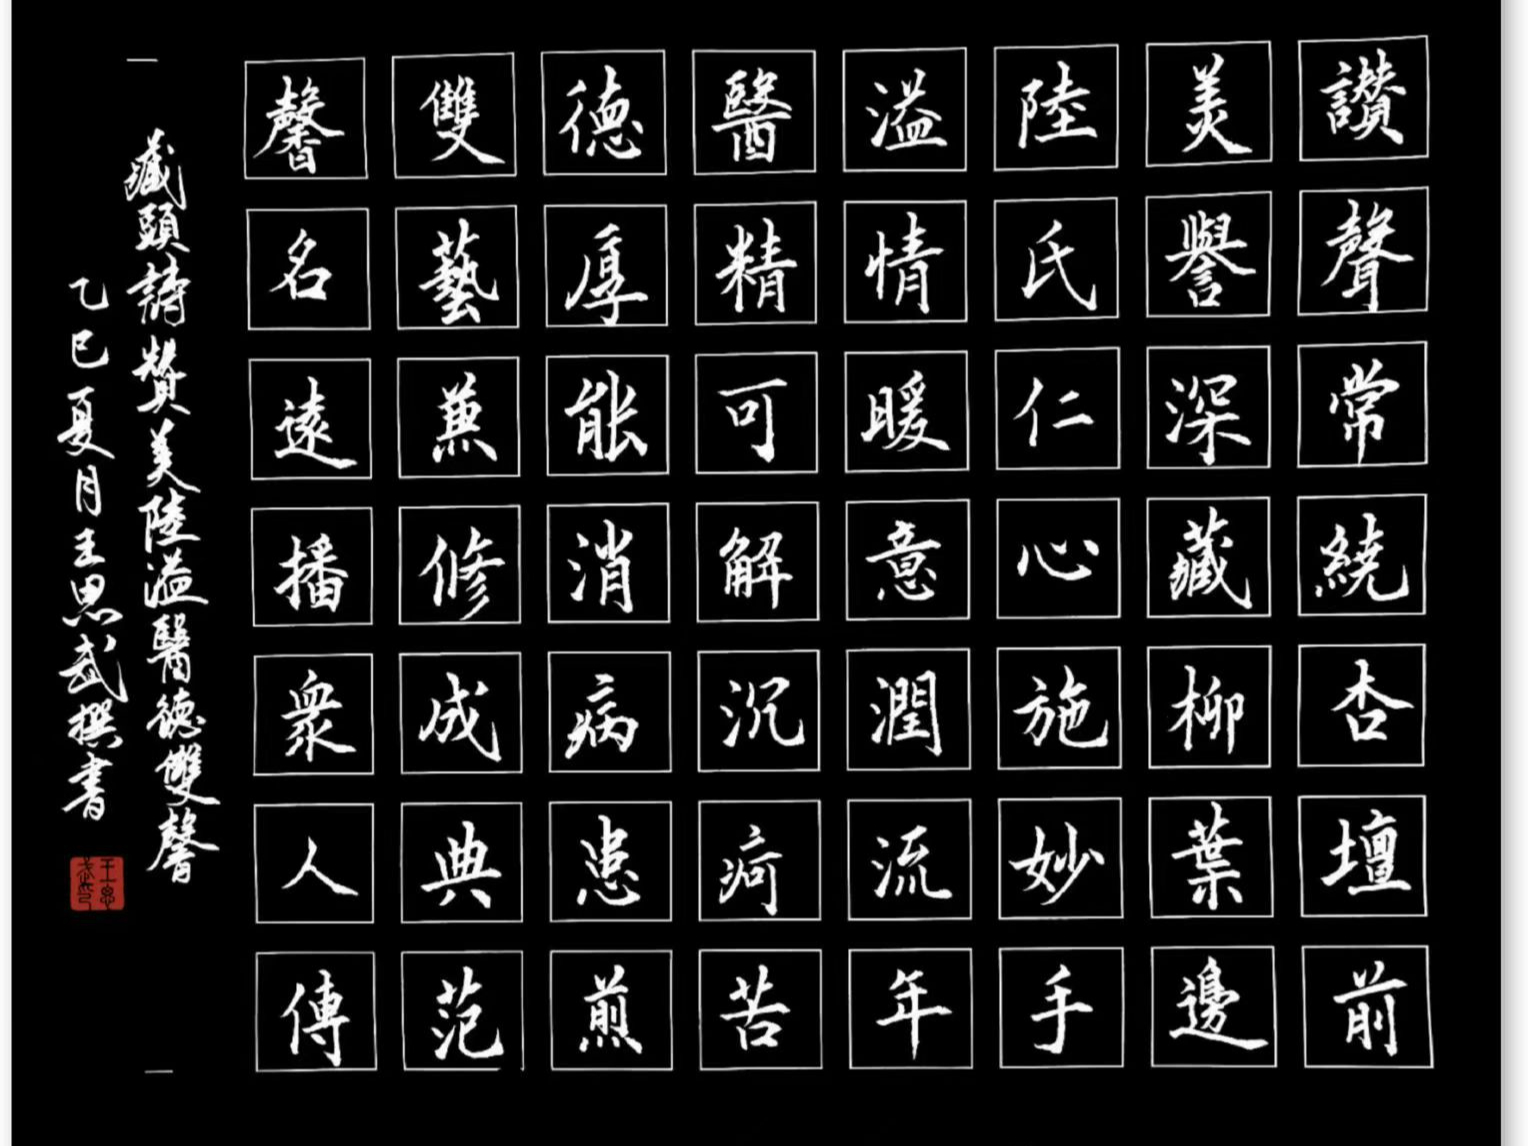 讚聲常繞杏壇前
美譽深藏柳葉邊
陸氏仁心施妙手
溢情暖意潤流年
醫精可解沉疴苦
德厚能消病患煎
雙藝兼修成典范
馨名遠播衆人傳
藏頭詩贊美陸溢醫德雙馨
乙巳夏月王思武撰書